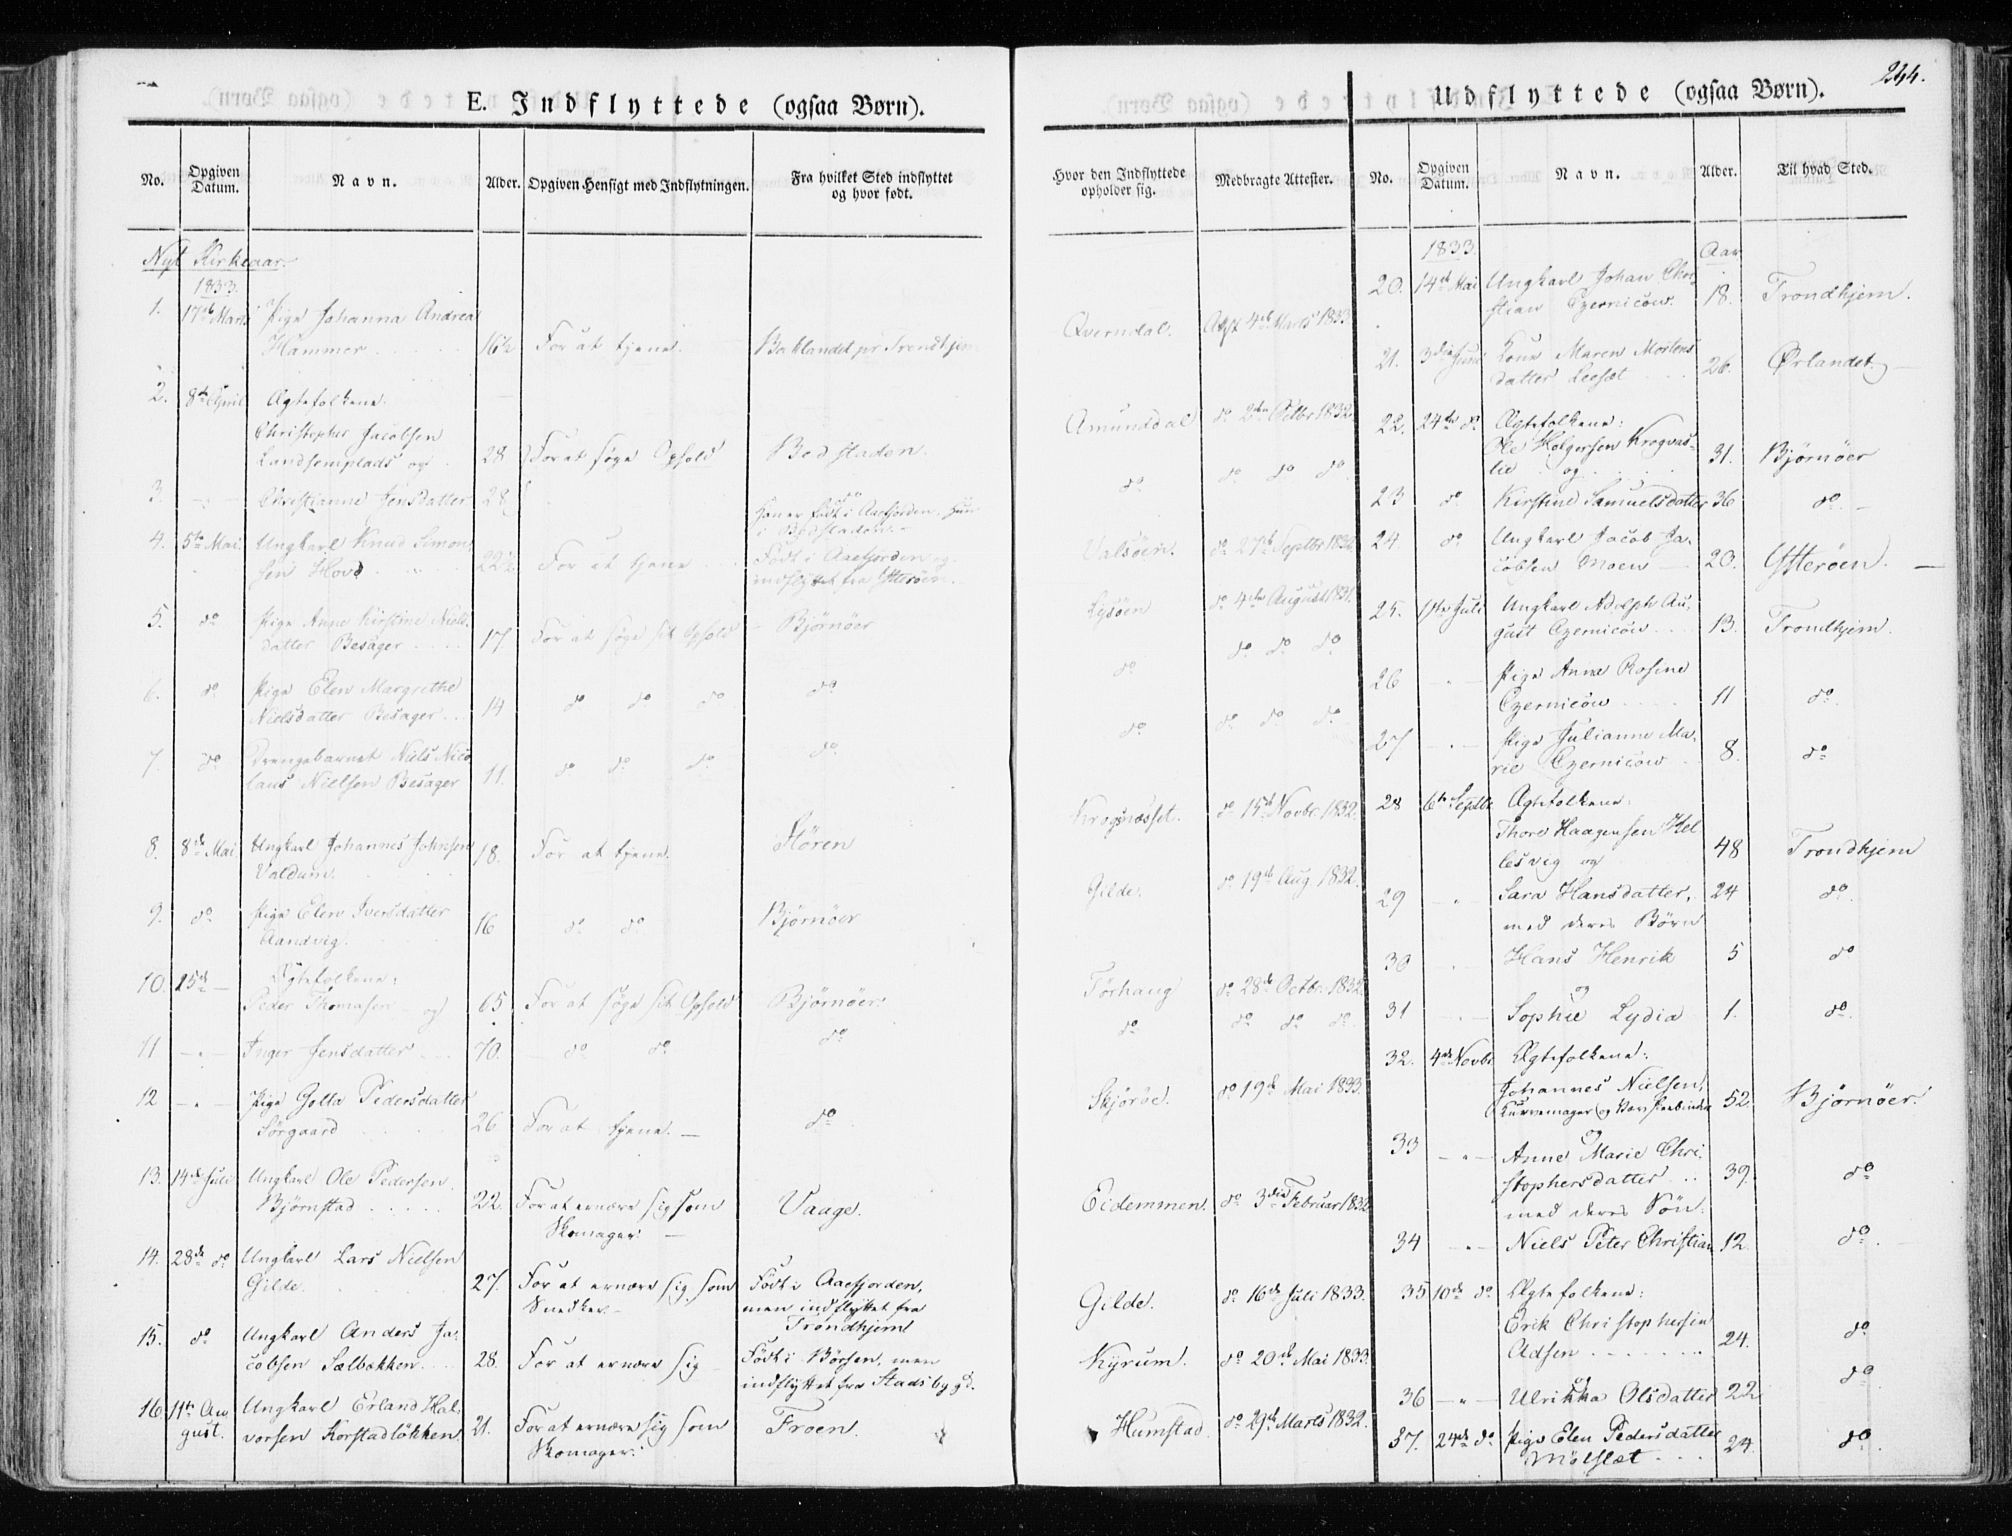 244.
E. Indflyttede (ogsaa Børn).
No.
Opgiven Datum.
Navn.
Alder.
Opgiven Hensigt med Indflytningen.
Fra hvilket Sted indflyttet og hvor født.
Hvor den Indflyttede opholder sig.
Medbragte Attester.
Nyt Kirkeaar.
1833.
1. 17de Marts Pige Johanna Andrea
Hammer 16½ For at tjene. Baklandet pr Trondhjem Qverndal. Attst 4de Marts 1833
2. 8de April Ægtefolkene.
Christopher Jacobsen
Landsemplads og 28 For at søge Ophold Bodstaden. Amundsdal do 2den Octbr 1832
3. -"- Christianne Jensdatter 28 do. do do do
Han er født i Aafjorden. Hun
i Bodstaden.
4. 5te Mai. Ungkarl Knud Simon-
sen Hovd 22½ For at tjene Født i Aaefjorden og
indflyttet fra Ytterøen. Valsøen. do 27de Septbr 1832
5. do Pige Anne Kirstine Niels-
datter Besager 17 For at søge sit Ophold Bjørnøer Lysøen do 4de August 1831.
6. do Pige Elen Margrethe
Nielsdatter Besager 14 do do do do do do do do
7. do Drengebarnet Niels Nico
laus Nielsen Besager 11. do do do do do do do do
8. 8de Mai. Ungkarl Johannes Johnsen
Valdum. 18. For at tjene. Støren Krogsnæsset. do 15de Novbr 1832.
9. do Pige Elen Iversdatter
Aandvig. 16 do do Bjørnøer Gilde. do 19de Aug 1832.
10. 15de - Ægtefolkene:
Peder Thomasen og 65. For at søge sit Ophold Bjørnøer. Førhaug do 28de Octbr 1832.
11 -"- Inger Jensdatter 70. do do do do do do do
12 -"- Pige Golla Pedersdatter
Sørgaard 26 For at tjene. do Skjørøe. do 19de Mai 1833.
13. 14de Juli Ungkarl Ole Pedersen
Bjørnstad 22. For at ernære sig som
Skomager. Vaage. Eidemmen. do 3die Februar 1832
14. 28de do Ungkarl Lars Nielsen
Gilde. 27. For at ernære sig som
Snedker. Født i Aaefjorden,
men indflyttet fra
Trondhjem Gilde. do 16de Juli 1833.
15. do Ungkarl Anders Ja-
cobsen Sælbakken. 28. For at ernære sig Født i Børsen, men
indflyttet fra Stadsbygd. Nyrum. do 20de Mai 1833.
16. 11te Au
gust. Ungkarl Erland Hal-
vorsen Korstadløkken 21. For at ernære sig som
Skomager. Froen. Humstad do 29de Marts 1832.
Udflyttede (ogsaa Børn).
No.
Opgiven Datum.
Navn.
Alder.
Til hvad Sted.
1833. Aar
20. 14de Mai Ungkarl Johan Chri-
stian Czernicow. 18. Trondhjem.
21. 3die Juni Kone Maren Mortens
datter Leesæt 26. Ørlandet.
22. 24de do Ægtefolkene:
Ole Holgersen Krognes-
lie og 31. Bjørnøer
23 do Kirstine Samuelsdatter 36 do.
24. do Ungkarl Jacob Ja-
cobsen Moen 20. Ytterøen.
25. 1ste Juli Ungkarl Adolph Au-
gust Czernicow 13. Trondhjem.
26 -"- Pige Anne Rosine
Czernicow 11 do.
27 -"- Pige Julianne Ma-
rie Czernicow 8. do
28 6te Septbr Ægtefolkene:
Thore Haagensen Hel
lesvig og 48 Trondhjem
29 -"- Sara Hansdatter, 24 do.
med deres Børn
30 -"- Hans Henrik 5 do
og
31 -"- Sophie Lydia 1. do.
32. 4de Novbr Ægtefolkene:
Johannes Nielsen,
Kurvemager og Børstenbinder 52. Bjørnøer.
33 -"- og
Anne Marie Chri-
stophersdatter 39. do
med deres Søn:
34 -"- Niels Peter Christian 12. do.
35 10de do Ægtefolkene:
Erik Christophersen
Adsen 24. do
36 -"- og
Ulrikka Olsdatter 22. do
37. 24de do Pige Elen Pedersdatter
Mølslæt 24. do.